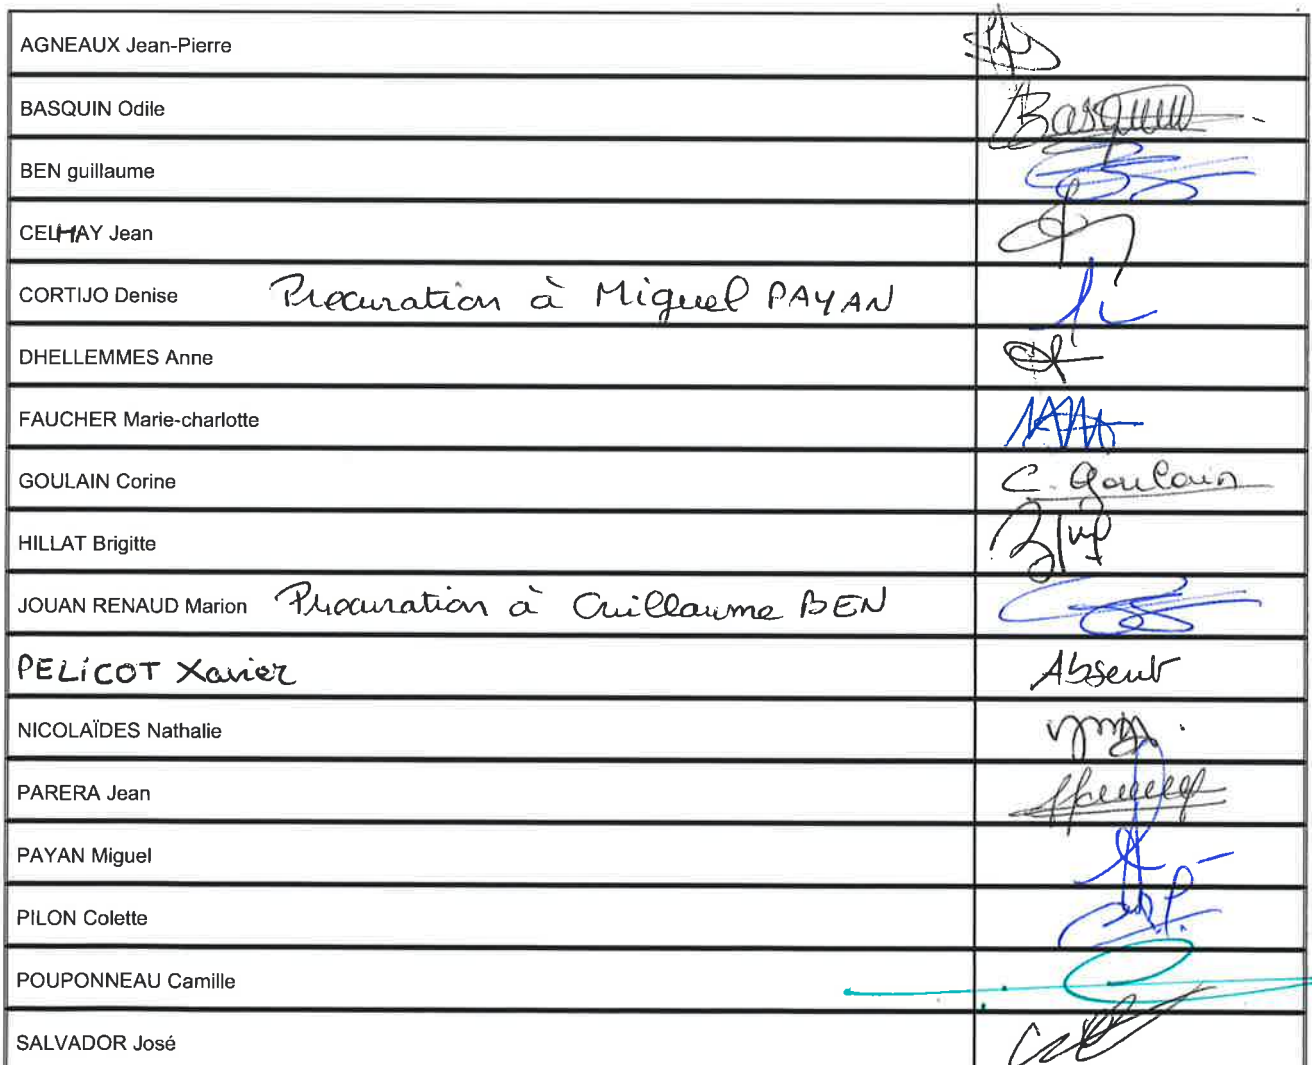 AGNEAUX Jean-Pierre
BASQUIN Odile Basquin
BEN guillaume
CELHAY Jean
CORTIJO Denise Procuration à Miguel PAYAN
DHELLEMMES Anne
FAUCHER Marie-charlotte
GOULAIN Corine C. Goulain
HILLAT Brigitte
JOUAN RENAUD Marion Procuration à Guillaume BEN
PELICOT Xavier Absent
NICOLAÏDES Nathalie
PARERA Jean
PAYAN Miguel
PILON Colette
POUPONNEAU Camille
SALVADOR José